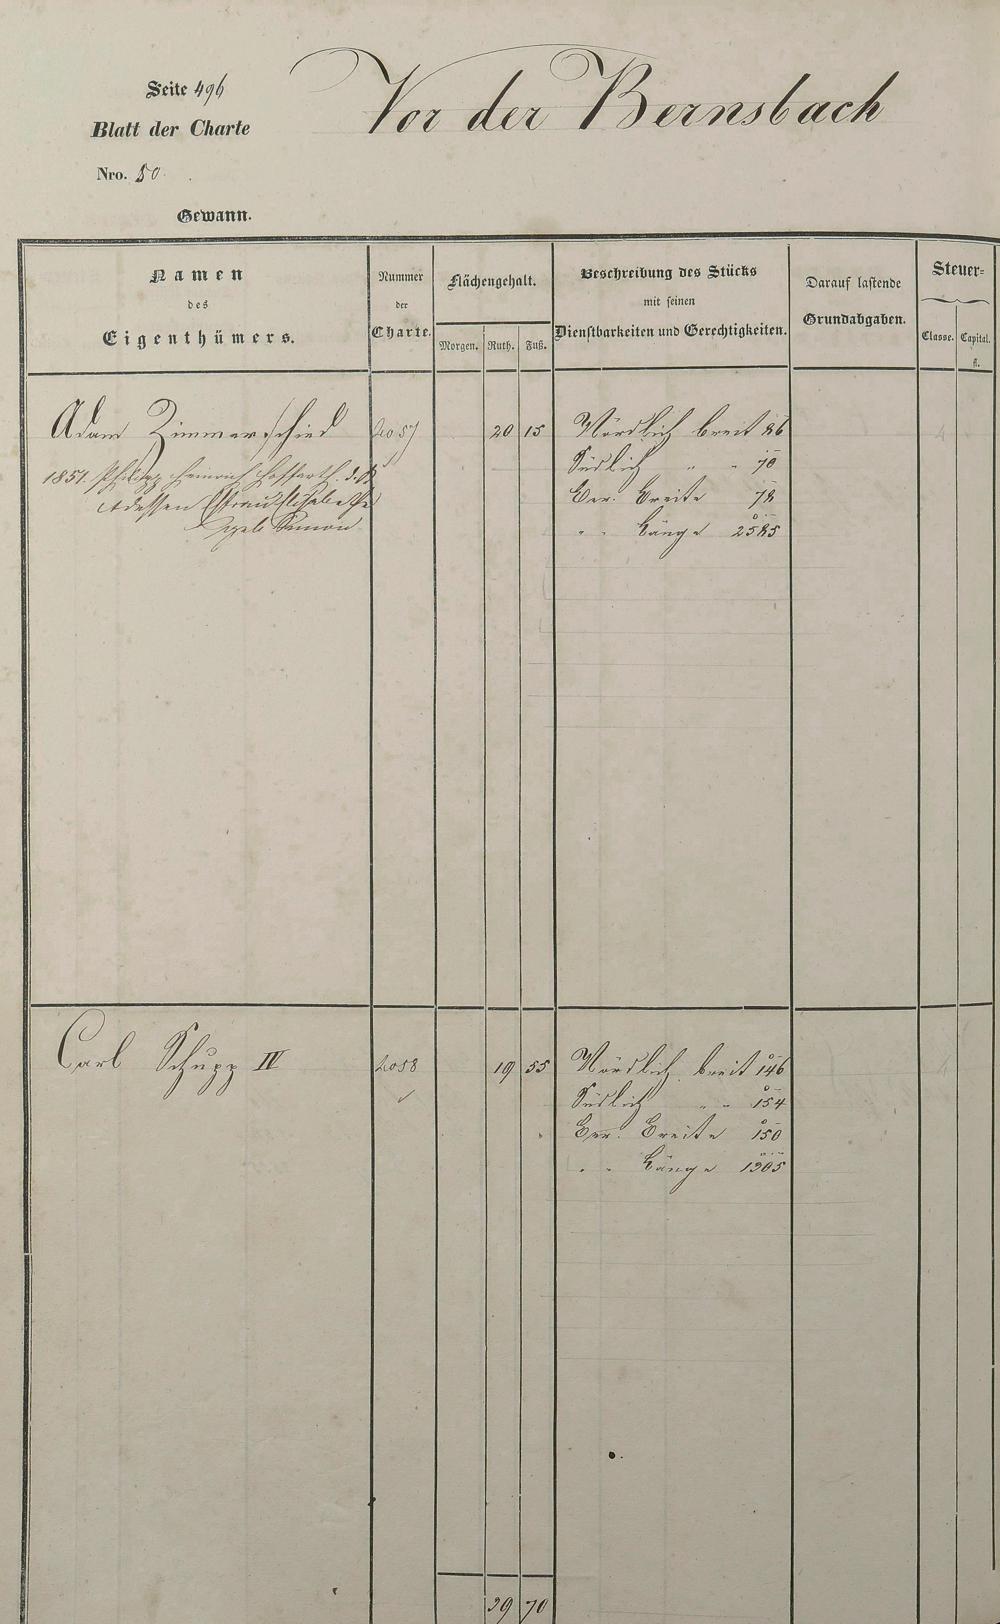 Seite 496
Vor der Bernsbach
Blatt der Charte
Nro. 50.
Gewann.
Namen
des
Eigenthümers.
Nummer
der
Charte.
Flächengehalt.
Morgen. Ruth. Fuß.
Beschreibung des Stücks
mit seinen
Dienstbarkeiten und Gerechtigkeiten.
Darauf lastende
Grundabgaben.
Steuer=
Classe. Capital.
fl.
Adam Zimmerschied 2057 20 15 Nördlich breit 86
1851. Philipp Heinrich Hoffarth
Südlich " " 70
Ber. Breite 78
" " Länge 2585
Simon
Carl Schupp IV 2058 19 55 Nördlich breit 146
Südlich " " 154
Ber. Breite 150
" " Länge 1305
39 70